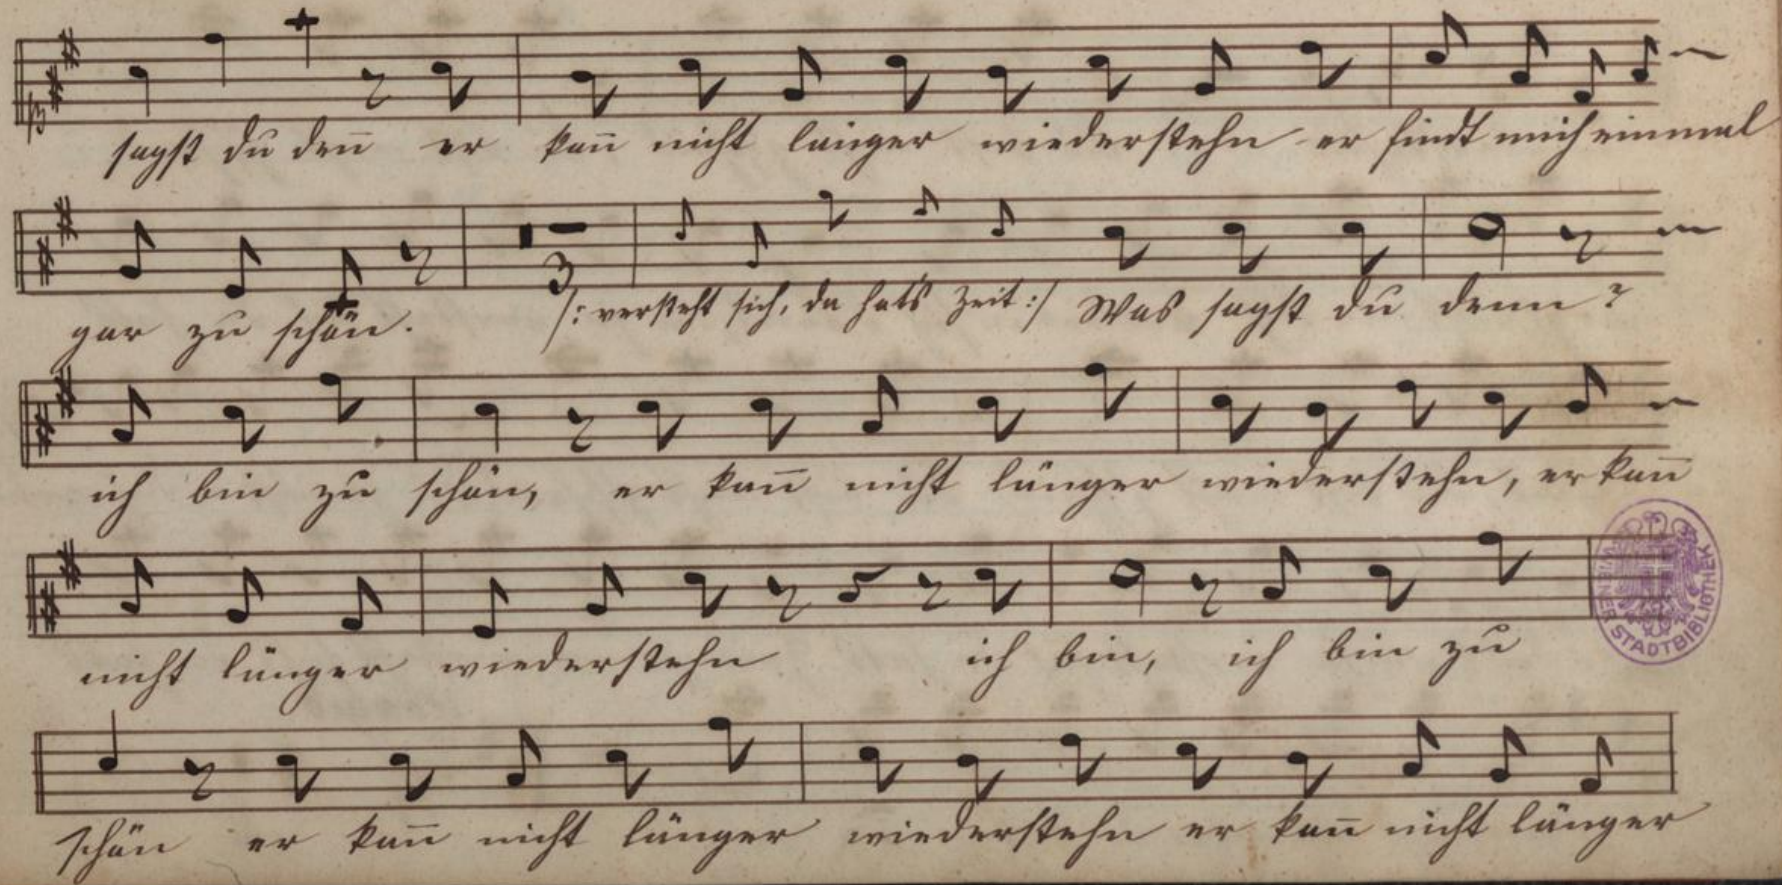 sagst du den̄ er kan̄ nicht länger wiederstehn er findt mich einmal
3
gar zu schön. /: versteht sich, da hats Zeit :/ Was sagst du denn?
ich bin zu schön, er kan̄ nicht länger wiederstehn, er kan̄
nicht länger wiederstehn ich bin, ich bin zu
WIENER STADTBIBLIOTHEK
schön er kan̄ nicht länger wiederstehn er kan̄ nicht länger